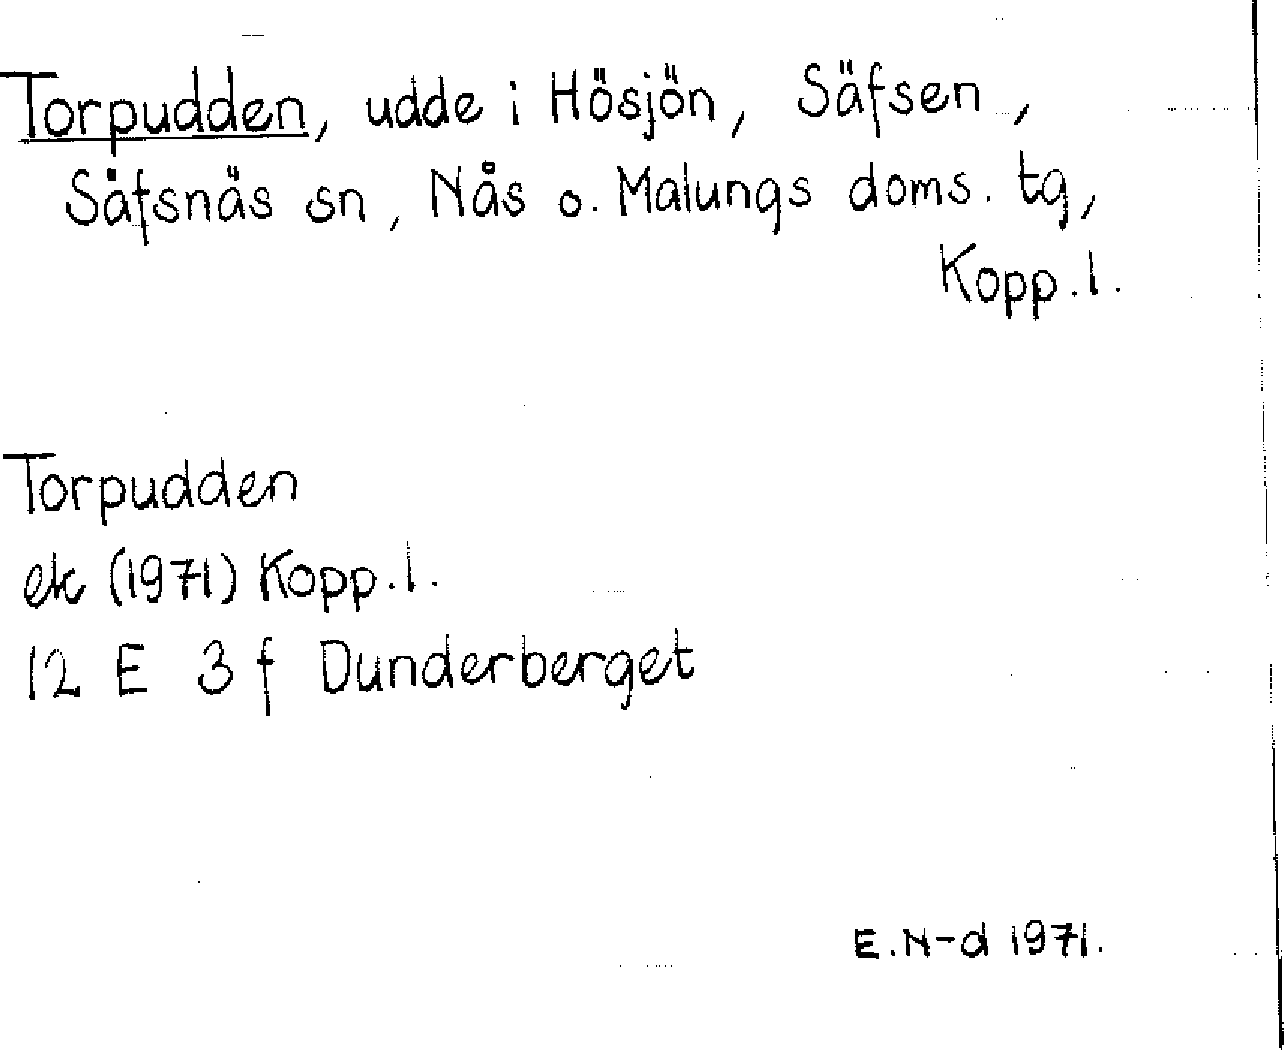 Torpudden, udde i Hösjön, Säfsen,
Säfsnäs sn, Nås o. Malungs doms. tg,
Kopp.l.
Torpudden
ek (1971) Kopp.l.
12 E 3 f Dunderberget
E.N-d 1971.